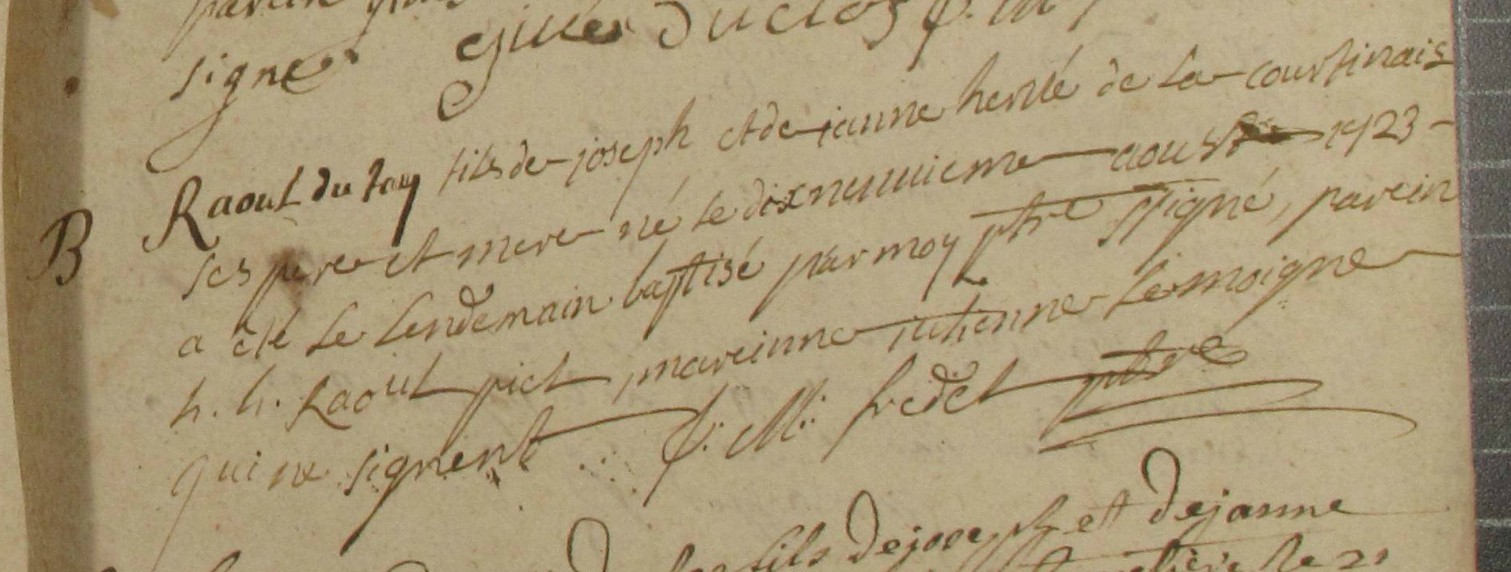 parein
signe Gilles Duclos p. m
B Raoul du fay fils de joseph et de janne hervé de la courtinais
ses pere et mere né le dixneuuieme aoust 1723
a été le lendemain baptisé par moy ptre ssigné, parein
h. h. Raoul piel mareinne julienne Lemoigne
qui ne signent f. M: fredel ptre
fils de joseph et de janne
le 21